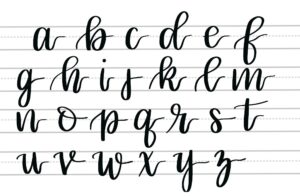 a b c d e f
g h i j k l m
n o p q r s t
u v w x y z